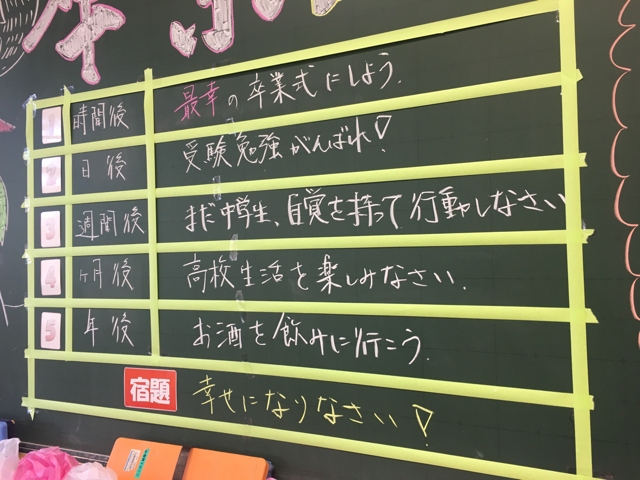 1 時間後 最幸の卒業式にしよう.
2 日後 受験勉強がんばれ!
3 週間後 まだ中学生、自覚を持って行動しなさい
4 ヶ月後 高校生活を楽しみなさい.
5 年後 お酒を飲みに行こう.
宿題 幸せになりなさい!